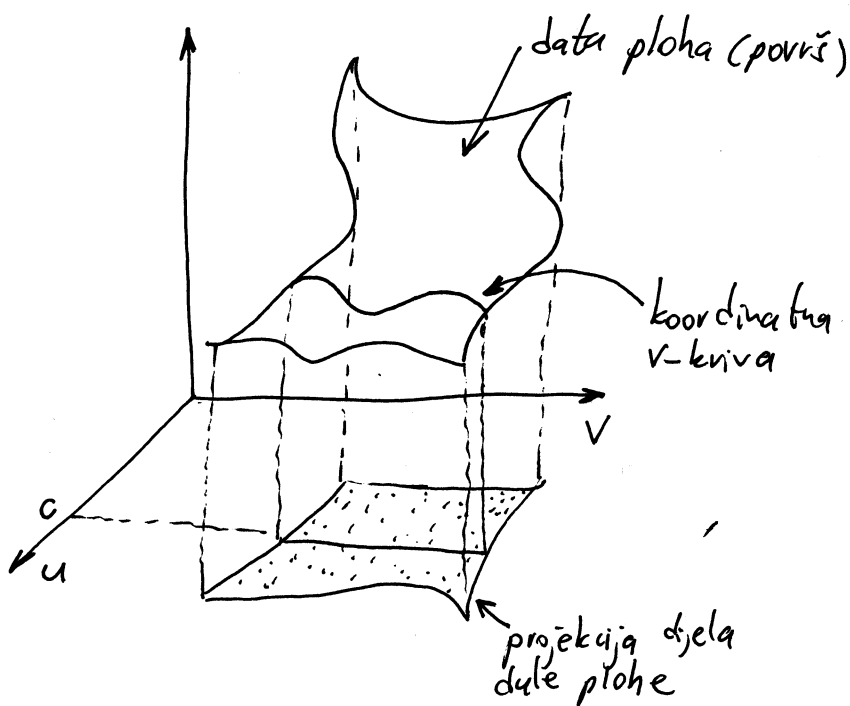 data ploha (površ)
koordinatna
v-kriva
V
c
u
projekcija djela
dule plohe